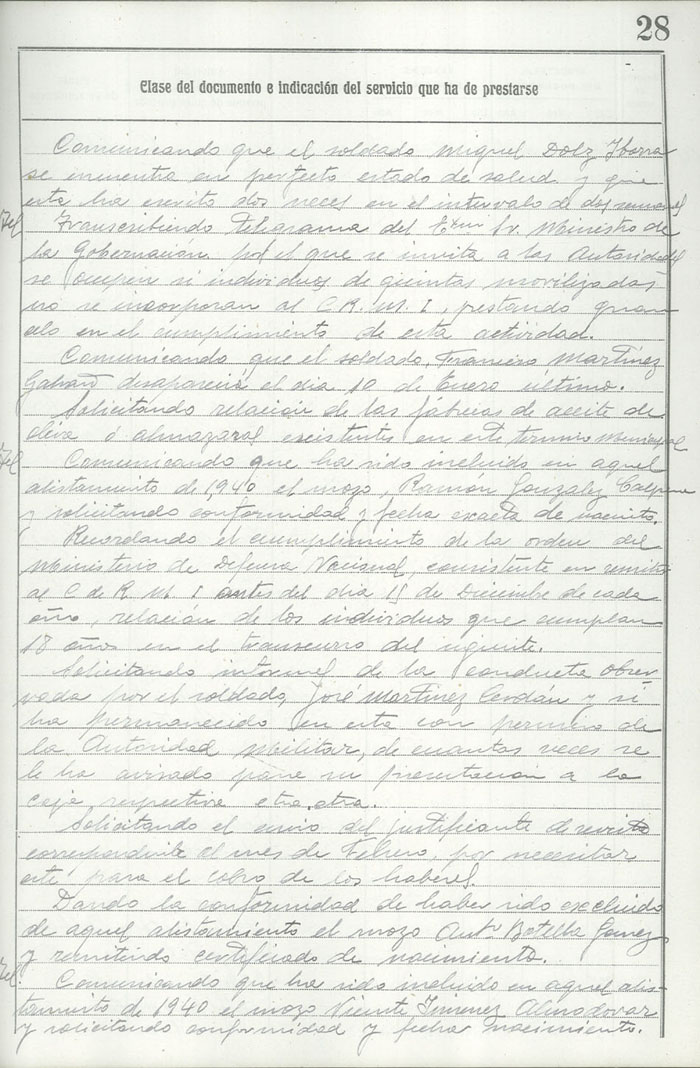 28
Clase del documento e indicación del servicio que ha de prestarse
Comunicando que el soldado Miguel Dolz Iborra
se encuentra en perfecto estado de salud y que
esta ha escrito dos veces en el intervalo de dos semanas
Transcribiendo Telegrama del Exmo Sr. Ministro de
la Gobernación por el que se invita a las Autoridades
se ocupen si individuos de quintas movilizadas
no se incorporan al C.R.M. I, prestando gran
celo en el cumplimiento de esta actividad.
Comunicando que el soldado, Francisco Martínez
desapareció el dia 10 de Enero último.
Solicitando relación de las fábricas de aceite de
oliva ó almazaras existentes en este termino Municipal
Comunicando que ha sido incluido en aquel
alistamiento de 1,940 el mozo, Ramón Gonzalez
y solicitando conformidad y fecha exacta de nacmto.
Recordando el cumplimiento de la orden del
Ministerio de Defensa Nacional, consistente en remitir
al C. de R. M. I antes del dia 15 de Diciembre de cada
año, relación de los individuos que cumplan
18 años en el transcurso del siguiente.
Solicitando informes de la conducta obser-
vada por el soldado, José Martínez Cerdán y si
ha permanecido en esta con permiso de
la Autoridad Militar, de cuantas veces se
le ha avisado para su presentación a la
caja respectiva etra. etra.
Solicitando el envio del justificante de revista
correspondiente al mes de Febrero, por necesitar
este para el cobro de los haberes.
Dando la conformidad de haber sido excluido
de aquel alistamiento el mozo Antº Botella Gomez
y remitiendo certificado de nacimiento.
Comunicando que ha sido incluido en aquel alis-
tamiento de 1940 el mozo Vicente Jimenez Almodovar
y solicitando conformidad y fecha nacimiento.